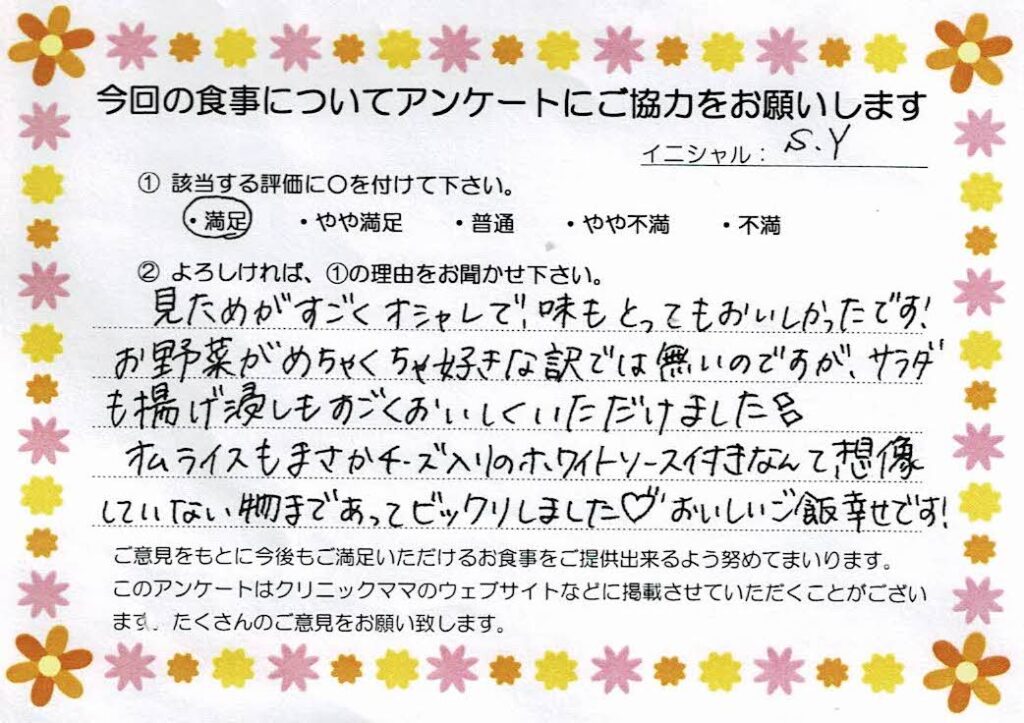 今回の食事についてアンケートにご協力をお願いします
イニシャル： S.Y
① 該当する評価に○を付けて下さい。
・満足 ・やや満足 ・普通 ・やや不満 ・不満
② よろしければ、①の理由をお聞かせ下さい。
見ためがすごくオシャレで、味もとってもおいしかったです!
お野菜がめちゃくちゃ好きな訳では無いのですが、サラダ
も揚げ浸しもすごくおいしくいただけました
オムライスもまさかチーズ入りのホワイトソース付きなんて、想像
していない物まであってビックリしました♡おいしいご飯幸せです!
ご意見をもとに今後もご満足いただけるお食事をご提供出来るよう努めてまいります。
このアンケートはクリニックママのウェブサイトなどに掲載させていただくことがござい
ます。たくさんのご意見をお願い致します。